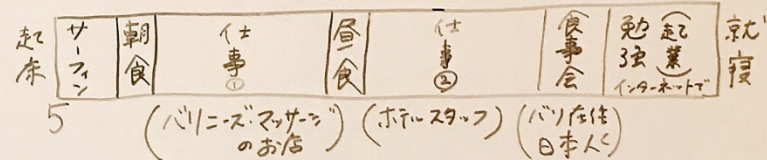 起床
サーフィン
朝食
仕事①
昼食
仕事②
食事会
勉強(起業)
インターネットで
就寝
5
(バリニーズ・マッサージ
のお店)
(ホテルスタッフ)
(バリ在住
日本人と)